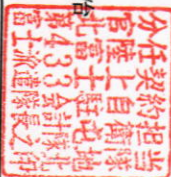 分任契約担当
官陸上自衛隊
北富士駐屯地
第433会計隊北
富士派遣隊長之印